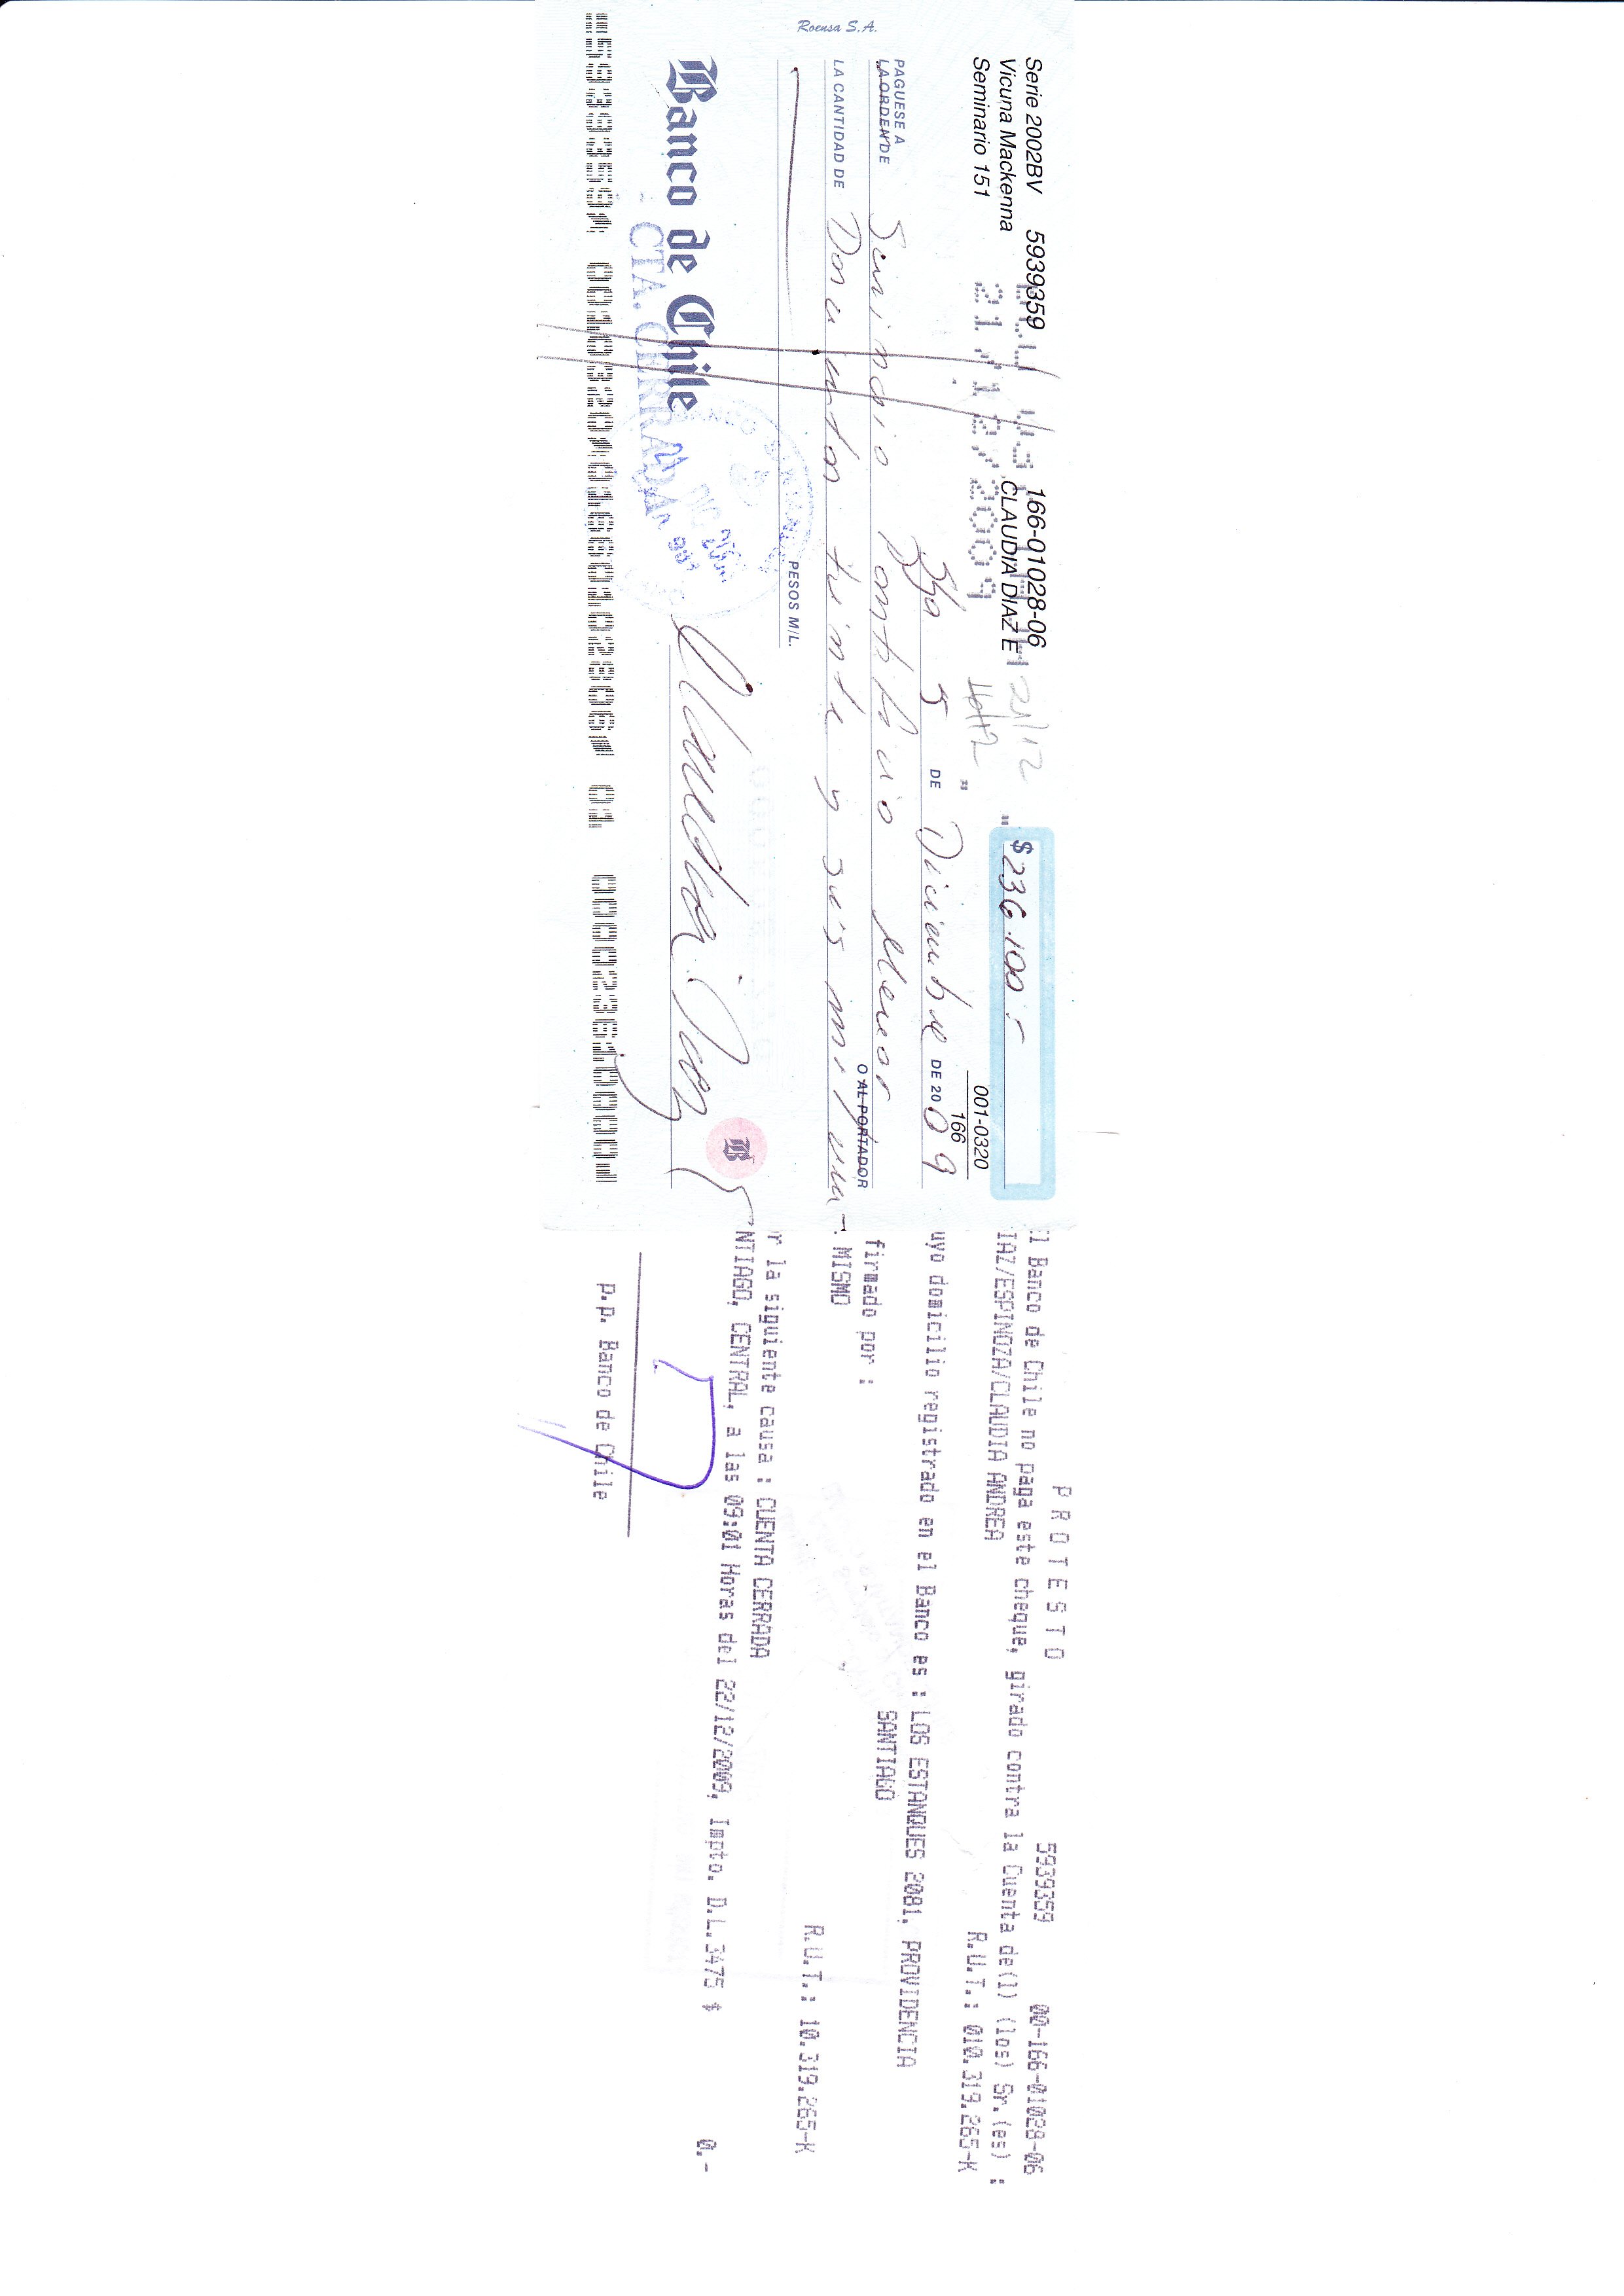 Roensa S.A.
Serie 2002BV 5939359 166-01028-06
Vicuna Mackenna CLAUDIA DIAZ E
Seminario 151
21/12
$ 236.100.-
001-0320
166
21 12 2009
Stgo 5 DE Diciembre DE 2009
PAGUESE A
LA ORDEN DE Seminario Pontificio Menor
O AL PORTADOR
LA CANTIDAD DE
treinta y seis mil
PESOS M/L.
Banco de Chile
CTA. CERRADA
P R O T E S T O 5939359 00-166-01028-06
l Banco de Chile no paga este cheque, girado contra la Cuenta de(l) (los) Sr.(es) :
IAZ/ESPINOZA/CLAUDIA ANDREA R.U.T.: 010.319.265-K
uyo domicilio registrado en el Banco es : LOS ESTANQUES 2081, PROVIDENCIA
SANTIAGO
firmado por :
MISMO R.U.T.: 10.319.265-K
r la siguiente causa : CUENTA CERRADA
NTIAGO, CENTRAL, a las 09:01 Horas del 22/12/2009, Impto. D.L.3475 $ 0.-
p.p. Banco de Chile